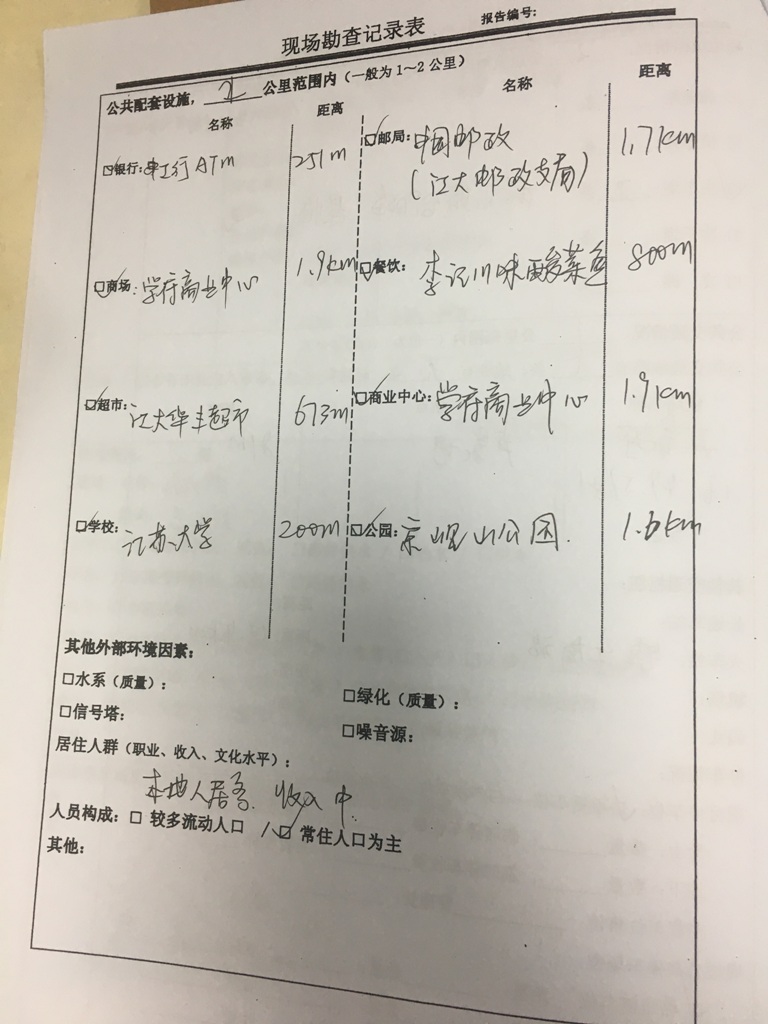 现场勘查记录表
报告编号:
公共配套设施, 2 公里范围内(一般为1~2公里)
名称 距离 名称 距离
☑银行: 工行ATM 251m ☑邮局: 中国邮政 1.7km
(江大邮政支局)
☑商场: 学府商业中心 1.9km ☑餐饮: 李记川味酸菜鱼 800m
☑超市: 江大华丰超市 673m ☑商业中心: 学府商业中心 1.9km
☑学校: 江苏大学 200m ☑公园: 京岘山公园. 1.6km
其他外部环境因素:
☐水系(质量): ☐绿化(质量):
☐信号塔: ☐噪音源:
居住人群(职业、收入、文化水平):
本地人居多. 收入中.
人员构成: ☐ 较多流动人口 / ☑ 常住人口为主
其他: